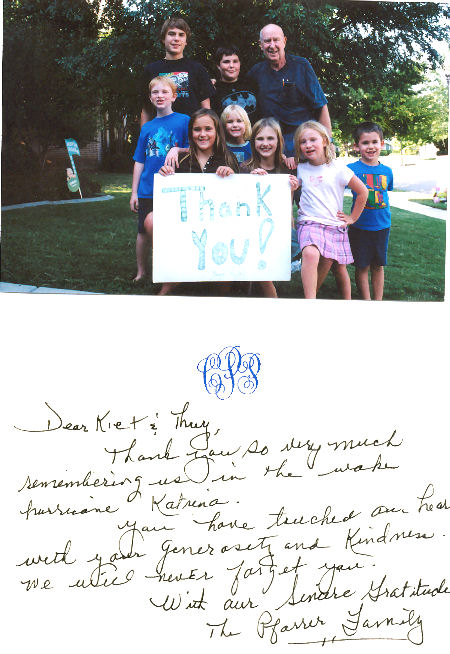 Thank
You!
Dear Kiet & Thuy,
Thank you so very much
remembering us in the wake
hurricane Katrina.
You have touched our hear
with your generosity and Kindness.
We will never forget you.
With our Sincere Gratitude
The Pfarrer Family